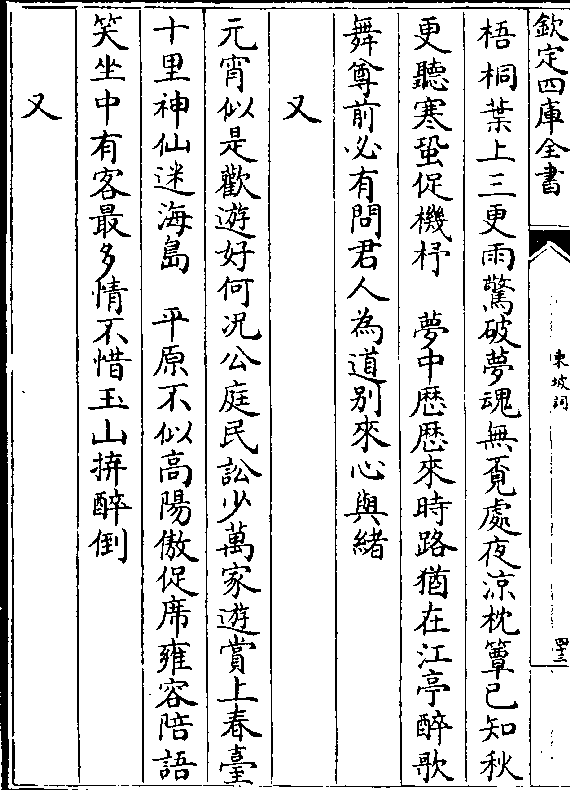 欽定四庫全書
東坡詞
四十三
梧桐葉上三更雨驚破夢魂無覔處夜涼枕簟已知秋
更聽寒蛩促機杼　夢中歷歷來時路猶在江亭醉歌
舞尊前必有問君人為道别來心與緒
又
元宵似是歡遊好何况公庭民訟少萬家遊賞上春臺
十里神仙迷海島　平原不似高陽傲促席雍容陪語
笑坐中有客最多情不惜玉山拚醉倒
又